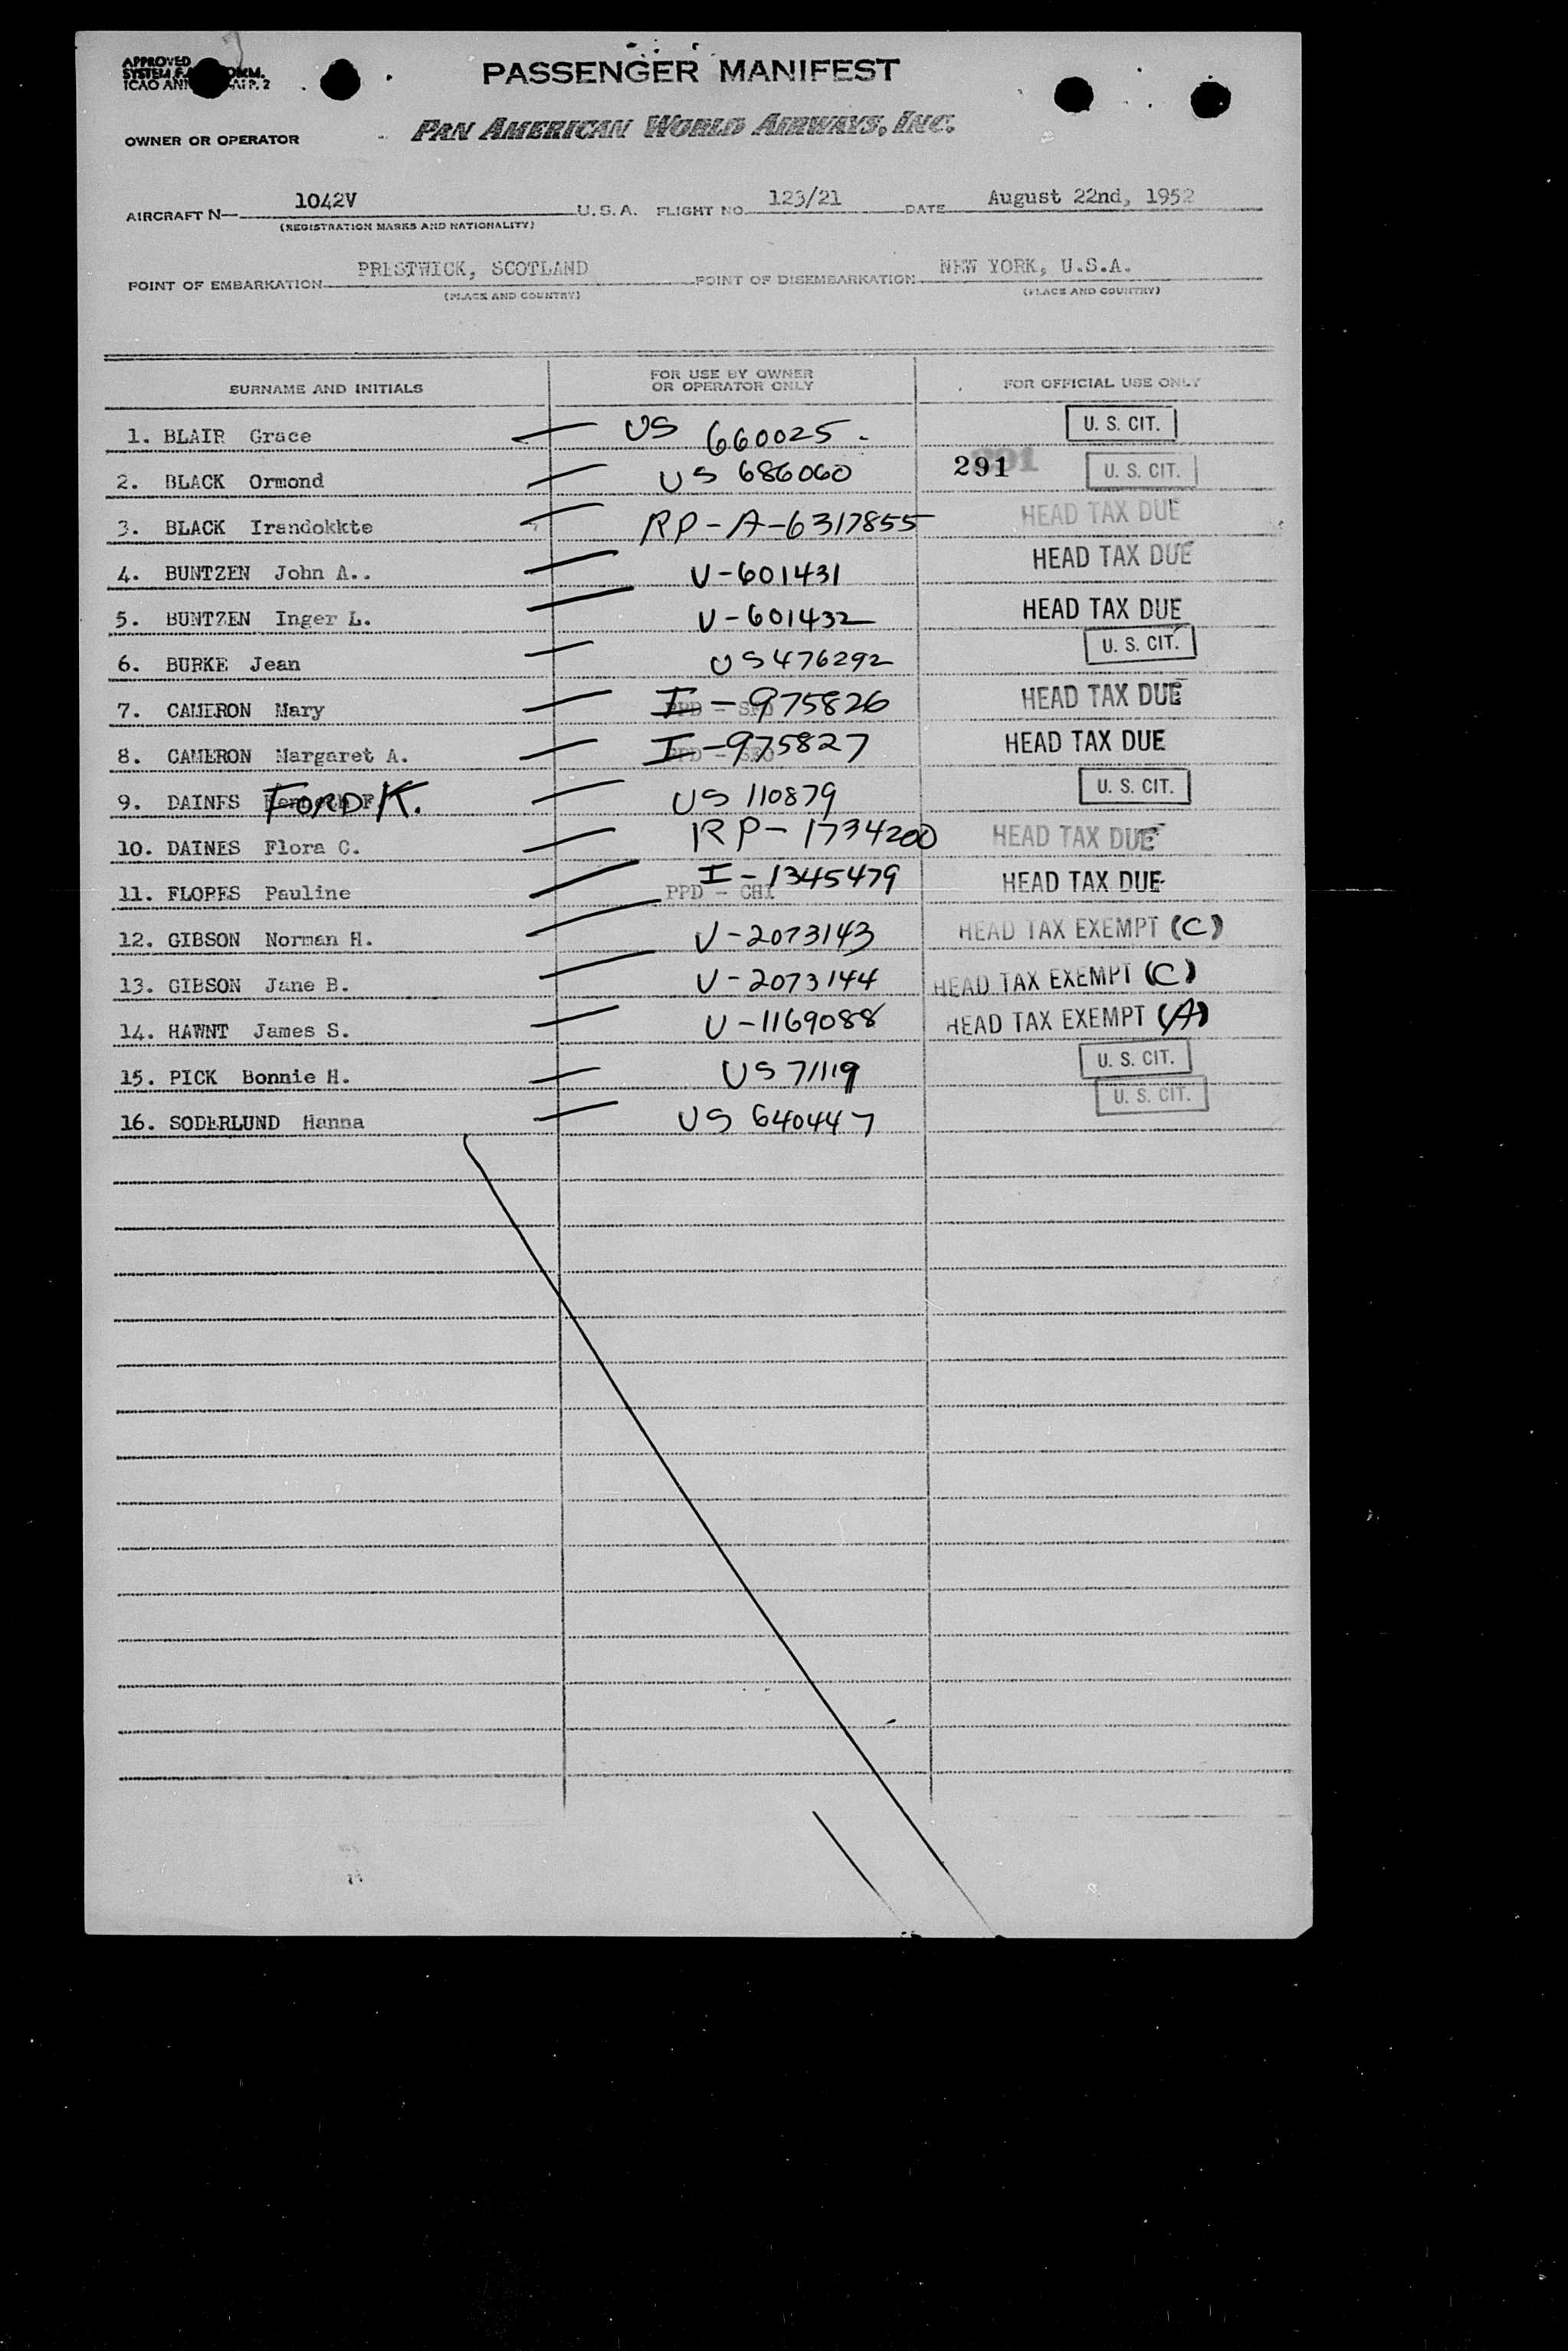 APPROVED
PASSENGER MANIFEST
OWNER OR OPERATOR PAN AMERICAN WORLD AIRWAYS, INC.
AIRCRAFT N— 1042V U.S.A. FLIGHT NO. 123/21 DATE August 22nd, 1952
(REGISTRATION MARKS AND NATIONALITY)
POINT OF EMBARKATION PRESTWICK, SCOTLAND POINT OF DISEMBARKATION NEW YORK, U.S.A.
(PLACE AND COUNTRY) (PLACE AND COUNTRY)
SURNAME AND INITIALS FOR USE BY OWNER OR OPERATOR ONLY FOR OFFICIAL USE ONLY
1. BLAIR Grace US 660025. U. S. CIT.
2. BLACK Ormond US 686060 291 U. S. CIT.
3. BLACK Irandokkte RP-A-6317855 HEAD TAX DUE
4. BUNTZEN John A.. V-601431 HEAD TAX DUE
5. BUNTZEN Inger L. V-601432 HEAD TAX DUE
6. BURKE Jean US 476292 U. S. CIT.
7. CAMERON Mary I-975826 HEAD TAX DUE
8. CAMERON Margaret A. I-975827 HEAD TAX DUE
9. DAINES FORD K. US 110879 U. S. CIT.
10. DAINES Flora C. RP-1734200 HEAD TAX DUE
11. FLORES Pauline PPD - CHI I-1345479 HEAD TAX DUE
12. GIBSON Norman H. V-2073143 HEAD TAX EXEMPT (C)
13. GIBSON Jane B. V-2073144 HEAD TAX EXEMPT (C)
14. HAWNT James S. V-1169088 HEAD TAX EXEMPT (A)
15. PICK Bonnie H. US 71119 U. S. CIT.
16. SODERLUND Hanna US 640447 U. S. CIT.